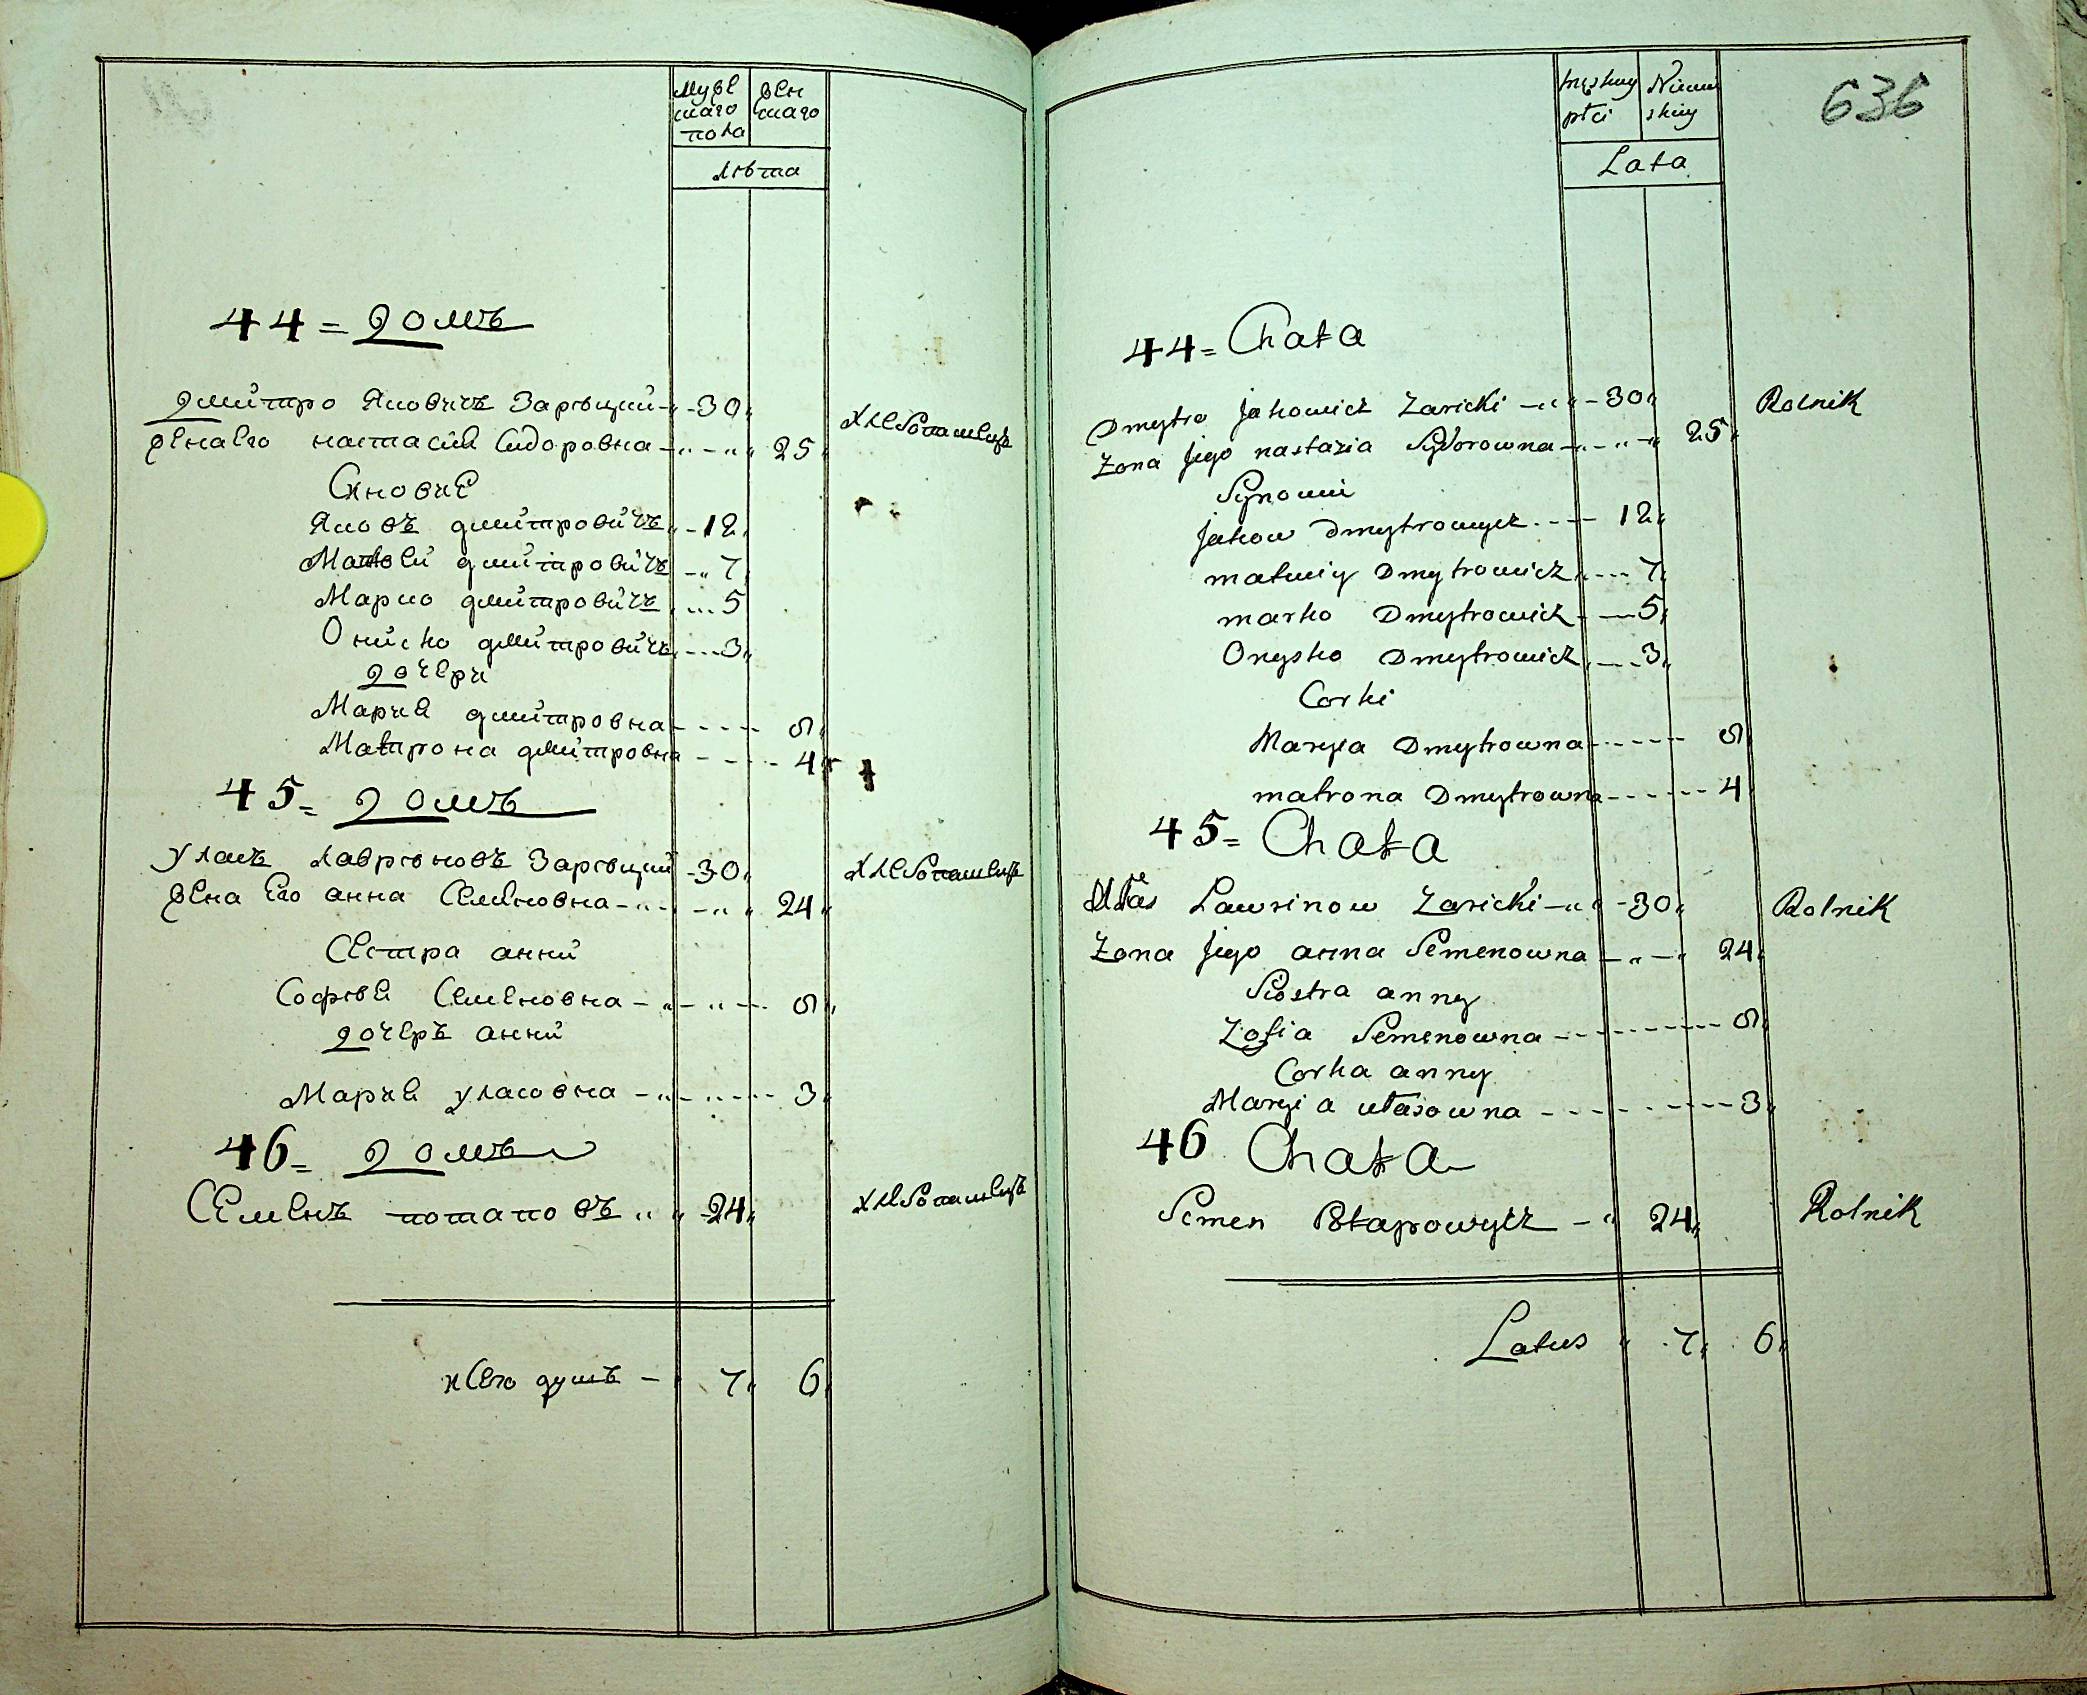 Мужескаго пола
женскаго
лѣта
44 = домъ
Дмитро Яковичъ Зарѣцкий 30
жена его настасия Сидоровна 25
Сыновие
Яковъ дмитровичъ 12
Матвей дмитровичъ 7
Марко дмитровичъ 5
Ониско дмитровичъ 3
дочери
Мария дмитровна 8
Матрона дмитровна 4
45 = домъ
Уласъ Лаврѣновъ Зарѣцкий 30
жена Его анна Семеновна 24
Сестра анни
Софѣя Семеновна 8
дочеръ анни
Мария уласовна 3
46 = домъ
Семенъ потаповъ 24
хлебопашецъ
хлебопашецъ
хлебопашецъ
всего душъ 7 6
636
męskiey płci
Niewieskiey
Lata
44 = Chata
Dmytro Jakowicz Zaricki 30 Rolnik
Zona Jego nastazia Sydorowna 25
Synowi
Jakow Dmytrowycz 12
matwiy Dmytrowicz 7
marko Dmytrowicz 5
Onysko Dmytrowicz 3
Corki
Marya Dmytrowna 8
matrona Dmytrowna 4
45 = Chata
Ułas Lawrinow Zaricki 30 Rolnik
Zona Jego anna Semenowna 24
Siostra anny
Zofia Semenowna 8
Corka anny
Maryia ułasowna 3
46 Chata
Semen Potapowycz 24 Rolnik
Latus 7 6